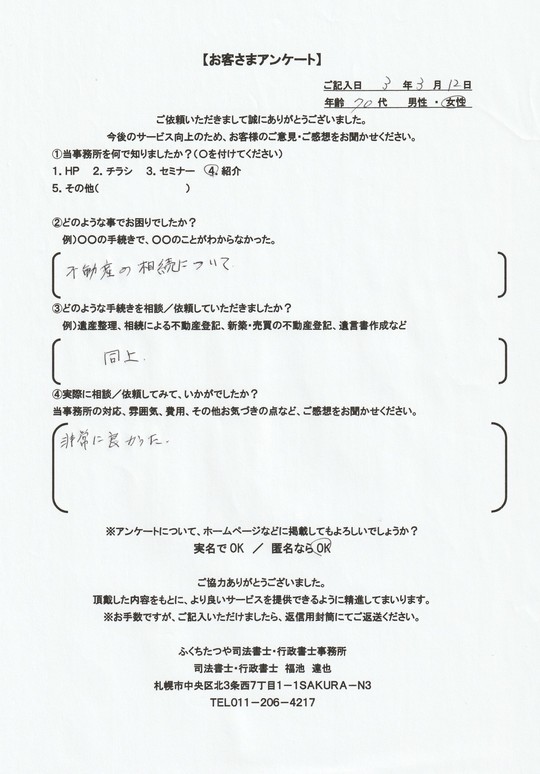 【お客さまアンケート】
ご記入日 3 年 3 月 12 日
年齢 70 代 男性 ・ 女性
ご依頼いただきまして誠にありがとうございました。
今後のサービス向上のため、お客様のご意見・ご感想をお聞かせください。
①当事務所を何で知りましたか？(〇を付けてください)
1. HP 2. チラシ 3. セミナー 4. 紹介
5. その他( )
②どのような事でお困りでしたか？
例)〇〇の手続きで、〇〇のことがわからなかった。
不動産の相続について
③どのような手続きを相談／依頼していただきましたか？
例)遺産整理、相続による不動産登記、新築・売買の不動産登記、遺言書作成など
同上.
④実際に相談／依頼してみて、いかがでしたか？
当事務所の対応、雰囲気、費用、その他お気づきの点など、ご感想をお聞かせください。
非常に良かった.
※アンケートについて、ホームページなどに掲載してもよろしいでしょうか？
実名で OK ／ 匿名なら OK
ご協力ありがとうございました。
頂戴した内容をもとに、より良いサービスを提供できるように精進してまいります。
※お手数ですが、ご記入いただけましたら、返信用封筒にてご返送ください。
ふくちたつや司法書士・行政書士事務所
司法書士・行政書士 福池 達也
札幌市中央区北3条西7丁目1－1SAKURA－N3
TEL011－206－4217